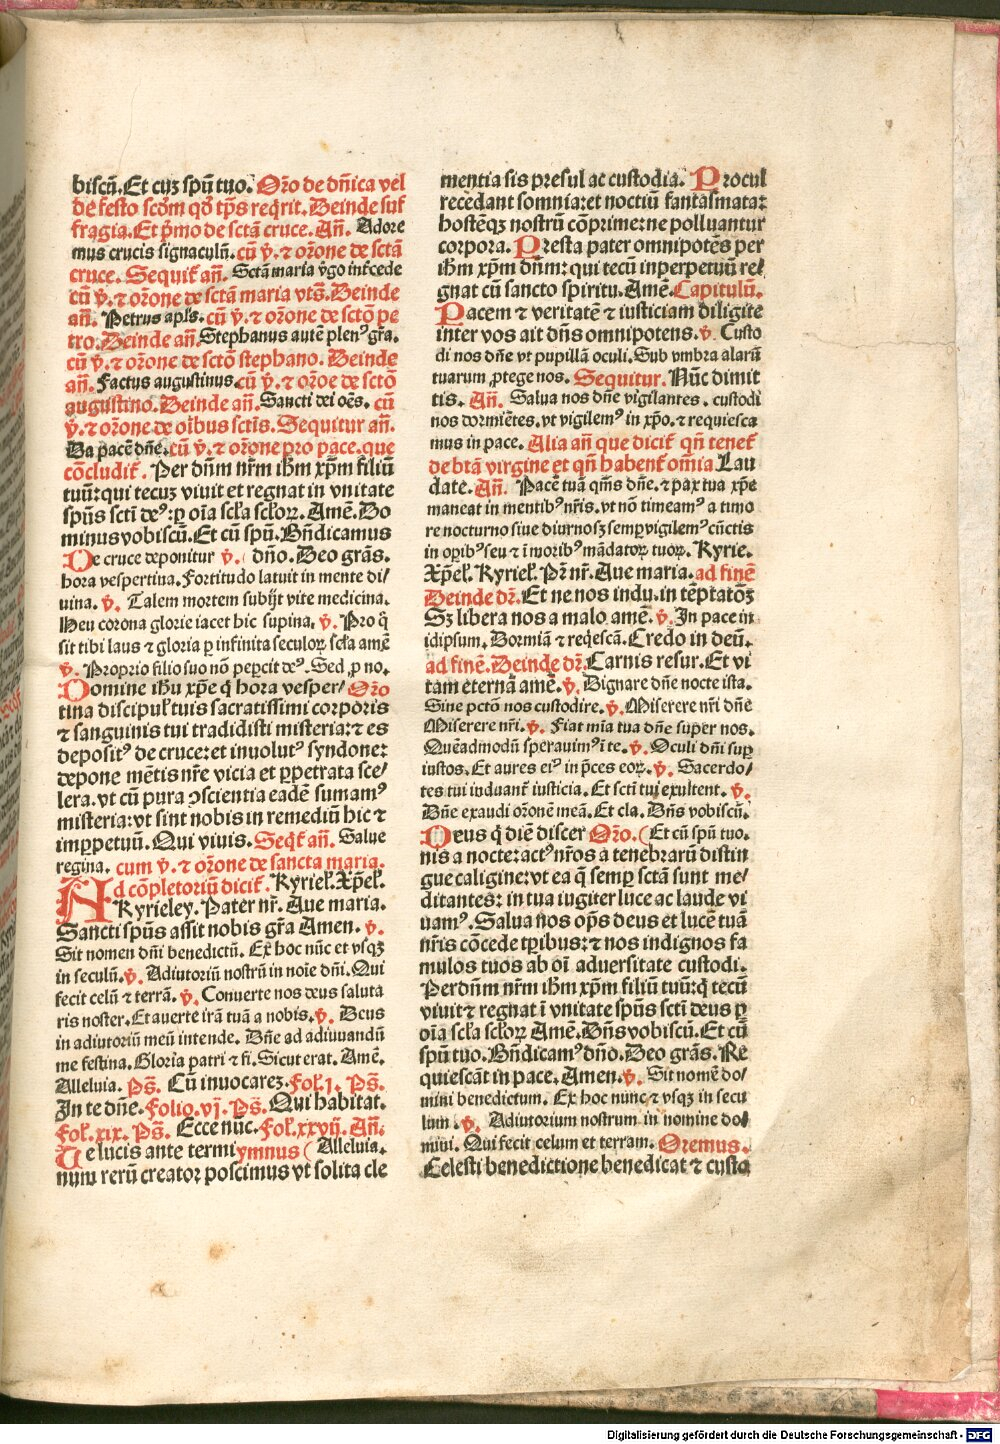 biscũ. Et cuȝ spũ tuo. Or̃o de dñica vel
de festo scđm qđ tp̃s reqͥrit. Deinde suf
fragia. Et pͥmo de sctã cruce. Añ. Adore
mus crucis signaculũ. cũ ꝟ. ⁊ or̃one de sctã
cruce. Sequit̃ añ. Sctã maria vͥgo int̃cede
cũ ꝟ. ⁊ or̃one de sctã maria vts̃. Deinde
añ. Petrus apl̃s. cũ ꝟ. ⁊ or̃one de sctõ pe
tro. Deinde añ. Stephanus autẽ plenꝰ gr̃a.
cũ ꝟ. ⁊ or̃one de sctõ stephano. Deinde
añ. Factus augustinus. cũ ꝟ. ⁊ or̃oe de sctõ
augustino. Deinde añ. Sancti dei oẽs. cũ
ꝟ. ⁊ or̃one de oĩbus sctĩs. Sequitur añ.
Da pacẽ dñe. cũ ꝟ. ⁊ or̃one pro pace. que
cõcludit̃. Per dñm nr̃m ihm̃ xp̃m filiũ
tuũ: qui tecuȝ viuit et regnat in vnitate
spũs sctĩ deꝰ: ꝑ oĩa scl̃a scl̃oꝝ. Amẽ. Do
minus vobiscũ. Et cũ spũ. Bñdicamus
De cruce deponitur ꝟ. ( dño. Deo grãs.
hora vespertina. Fortitudo latuit in mente di/
uina. ꝟ. Talem mortem subijt vite medicina.
Heu corona glorie iacet hic supina. ꝟ. Pro q̃
sit tibi laus ⁊ gloria ꝑ infinita seculoꝝ scl̃a amẽ
ꝟ. Proprio filio suo nõ peꝑcit deꝰ. Sed ꝓ no.
Domine ihũ xp̃e q̃ hora vesper/ Or̃o
tina discipul̃ tuis sacratissimi corporis
⁊ sanguinis tui tradidisti misteria: ⁊ es
depositꝰ de cruce: et inuolutꝰ syndone:
depone mẽtis nr̃e vicia et ꝑpetrata sce/
lera. vt cũ pura ↄscientia eadẽ sumamꝰ
misteria: vt sint nobis in remediũ hic ⁊
imꝑpetuũ. Qui viuis. Seqͥt̃ añ. Salue
regina. cum ꝟ. ⁊ or̃one de sancta maria.
Ad cõpletoriũ dicit̃. Kyriel̃. Xp̃el̃.
Kyrieley. Pater nr̃. Aue maria.
Sancti spũs assit nobis gr̃a Amen. ꝟ.
Sit nomen dñi benedictũ. Ex hoc nũc et vsqȝ
in seculũ. ꝟ. Adiutoriũ nostrũ in noĩe dñi. Qui
fecit celũ ⁊ terrã. ꝟ. Conuerte nos deus saluta
ris noster. Et auerte irã tuã a nobis. ꝟ. Deus
in adiutoriũ meũ intende. Dñe ad adiuuandũ
me festina. Gloria patri ⁊ fi. Sicut erat. Amẽ.
Alleluia. Ps̃. Cũ inuocareȝ. fol̃. j. Ps̃.
In te dñe. folio. vj. Ps̃. Qui habitat.
fol̃. xix. Ps̃. Ecce nũc. fol̃. xxvij. Añ.
Te lucis ante termi ymnus ( Alleluia.
num rerũ creator poscimus vt solita cle
mentia sis presul ac custodia. Procul
recedant somnia: et noctiũ fantasmata:
hostẽqȝ nostrũ cõprime: ne polluantur
corpora. Presta pater omnipotẽs per
ihm̃ xp̃m dñm: qui tecũ inperpetuũ re/
gnat cũ sancto spiritu. Amẽ. Capitulũ.
Pacem ⁊ veritatẽ ⁊ iusticiam diligite
inter vos ait dñs omnipotens. ꝟ. Custo
di nos dñe vt pupillã oculi. Sub vmbra alarũ
tuarum ꝓtege nos. Sequitur. Nũc dimit
tis. Añ. Salua nos dñe vigilantes. custodi
nos dormiẽtes. vt vigilemꝰ in xp̃o. ⁊ requiesca
mus in pace. Alia añ que dicit̃ qñ tenet̃
de btã virgine et qñ habent̃ om̃ia Lau
date. Añ. Pacẽ tuã qm̃s dñe. ⁊ pax tua xp̃e
maneat in mentibꝰ nr̃is. vt nõ timeamꝰ a timo
re nocturno siue diurno sꝫ semꝑ vigilemꝰ cũctis
in oꝑibꝰ seu ⁊ ĩ moribꝰ mãdatoꝝ tuoꝝ. Kyrie.
Xp̃el̃. Kyriel̃. Pr̃ nr̃. Aue maria. ad finẽ
Deinde dr̃. Et ne nos indu. in tẽptatõȝ
Sȝ libera nos a malo amẽ. ꝟ. In pace in
idipsum. Dormiã ⁊ reqͥescã. Credo in deũ.
ad finẽ. Deinde dr̃. Carnis resur. Et vi
tam eternã amẽ. ꝟ. Dignare dñe nocte ista.
Sine pctõ nos custodire. ꝟ. Miserere nr̃i dñe
Miserere nr̃i. ꝟ. Fiat mĩa tua dñe super nos.
Quẽadmodũ sperauimꝰ ĩ te. ꝟ. Oculi dñi suꝑ
iustos. Et aures eiꝰ in p̃ces eoꝝ. ꝟ. Sacerdo/
tes tui induant̃ iusticia. Et sctĩ tui exultent. ꝟ.
Dñe exaudi or̃onẽ meã. Et cla. Dñs vobiscũ.
Deus q̃ diẽ discer Or̃o. ( Et cũ spũ tuo.
nis a nocte: actꝰ nr̃os a tenebrarũ distin
gue caligine: vt ea q̃ semꝑ sctã sunt me/
ditantes: in tua iugiter luce ac laude vi
uamꝰ. Salua nos op̃s deus et lucẽ tuã
nr̃is cõcede tꝑibus: ⁊ nos indignos fa
mulos tuos ab oĩ aduersitate custodi.
Per dñm nr̃m ihm̃ xp̃m filiũ tuũ: q̃ tecũ
viuit ⁊ regnat ĩ vnitate spũs sctĩ deus ꝑ
oĩa scl̃a scl̃oꝝ Amẽ. Dñs vobiscũ. Et cũ
spũ tuo. Bñdicamꝰ dño. Deo grãs. Re
quiescãt in pace. Amen. ꝟ. Sit nomẽ do/
mini benedictum. Ex hoc nunc ⁊ vsqȝ in secu
lum. ꝟ. Adiutorium nostrum in nomine do/
mini. Qui fecit celum et terram. Oremus.
Celesti benedictione benedicat ⁊ custo
Digitalisierung gefördert durch die Deutsche Forschungsgemeinschaft - DFG